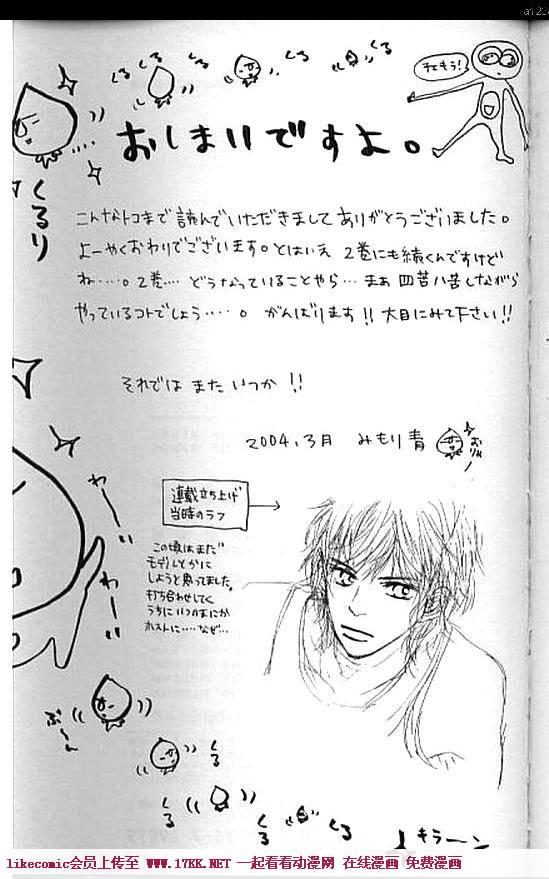 くる
くる
くる
くる
くる
チェもう!
おしまいですよ。
くるり
こんなトコまで 読んでいただきましてありがとうございました。
よーやくおわりでございます。とはいえ 2巻にも続くんですけど
ね‥‥。2巻‥‥ どうなっていることやら… まぁ 四苦八苦しながら
やっているコトでしょう‥‥。 がんばります!! 大目にみて下さい!!
それでは また いつか !!
2004.3月 みもり青
連載立ち上げ
当時のラフ
わーい
わーい
この頃はまだ
モデルとかに
しようと思ってました。
打ち合わせしてく
うちにいつのまにか
ホストに‥‥なぜ…
くる
くる
くる
くる
キラーン
likecomic会员上传至 WWW.17KK.NET 一起看看动漫网 在线漫画 免费漫画